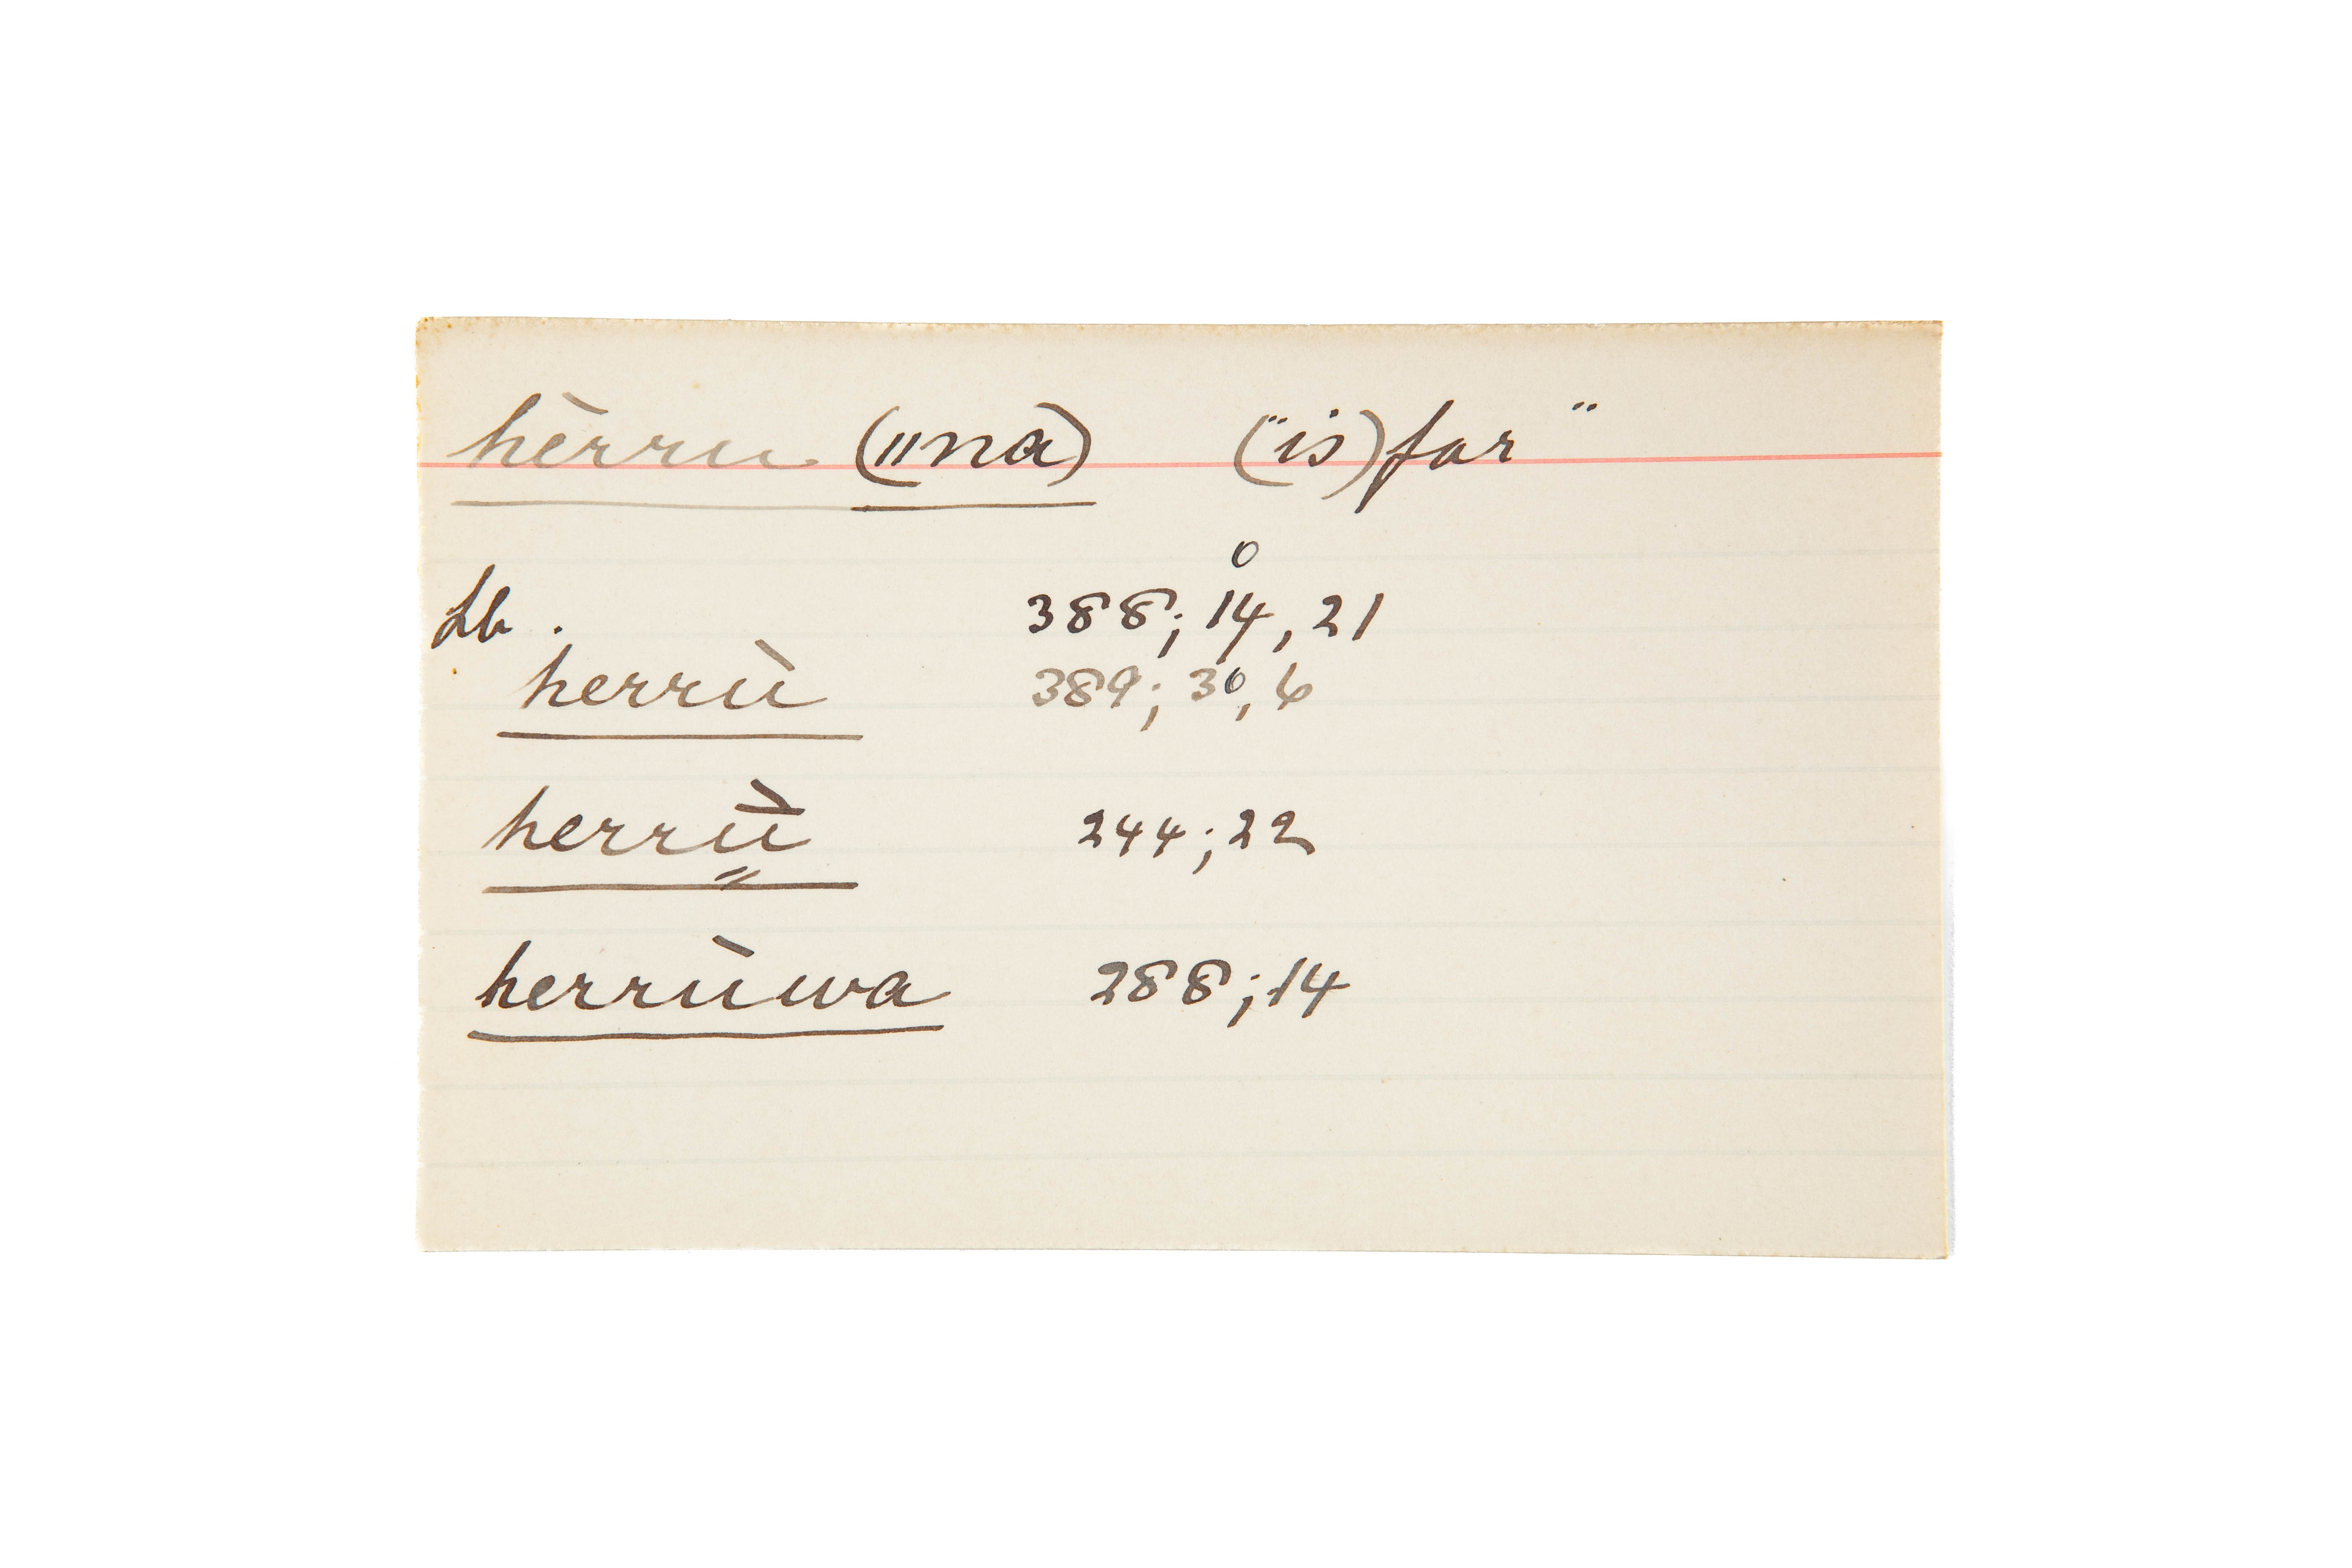 hèrru (〃na) ("is) far"
o
Lb. 388; 14, 21
herrù 389; 30, 6
herrū̀ 244; 22
herrùwa 288; 14